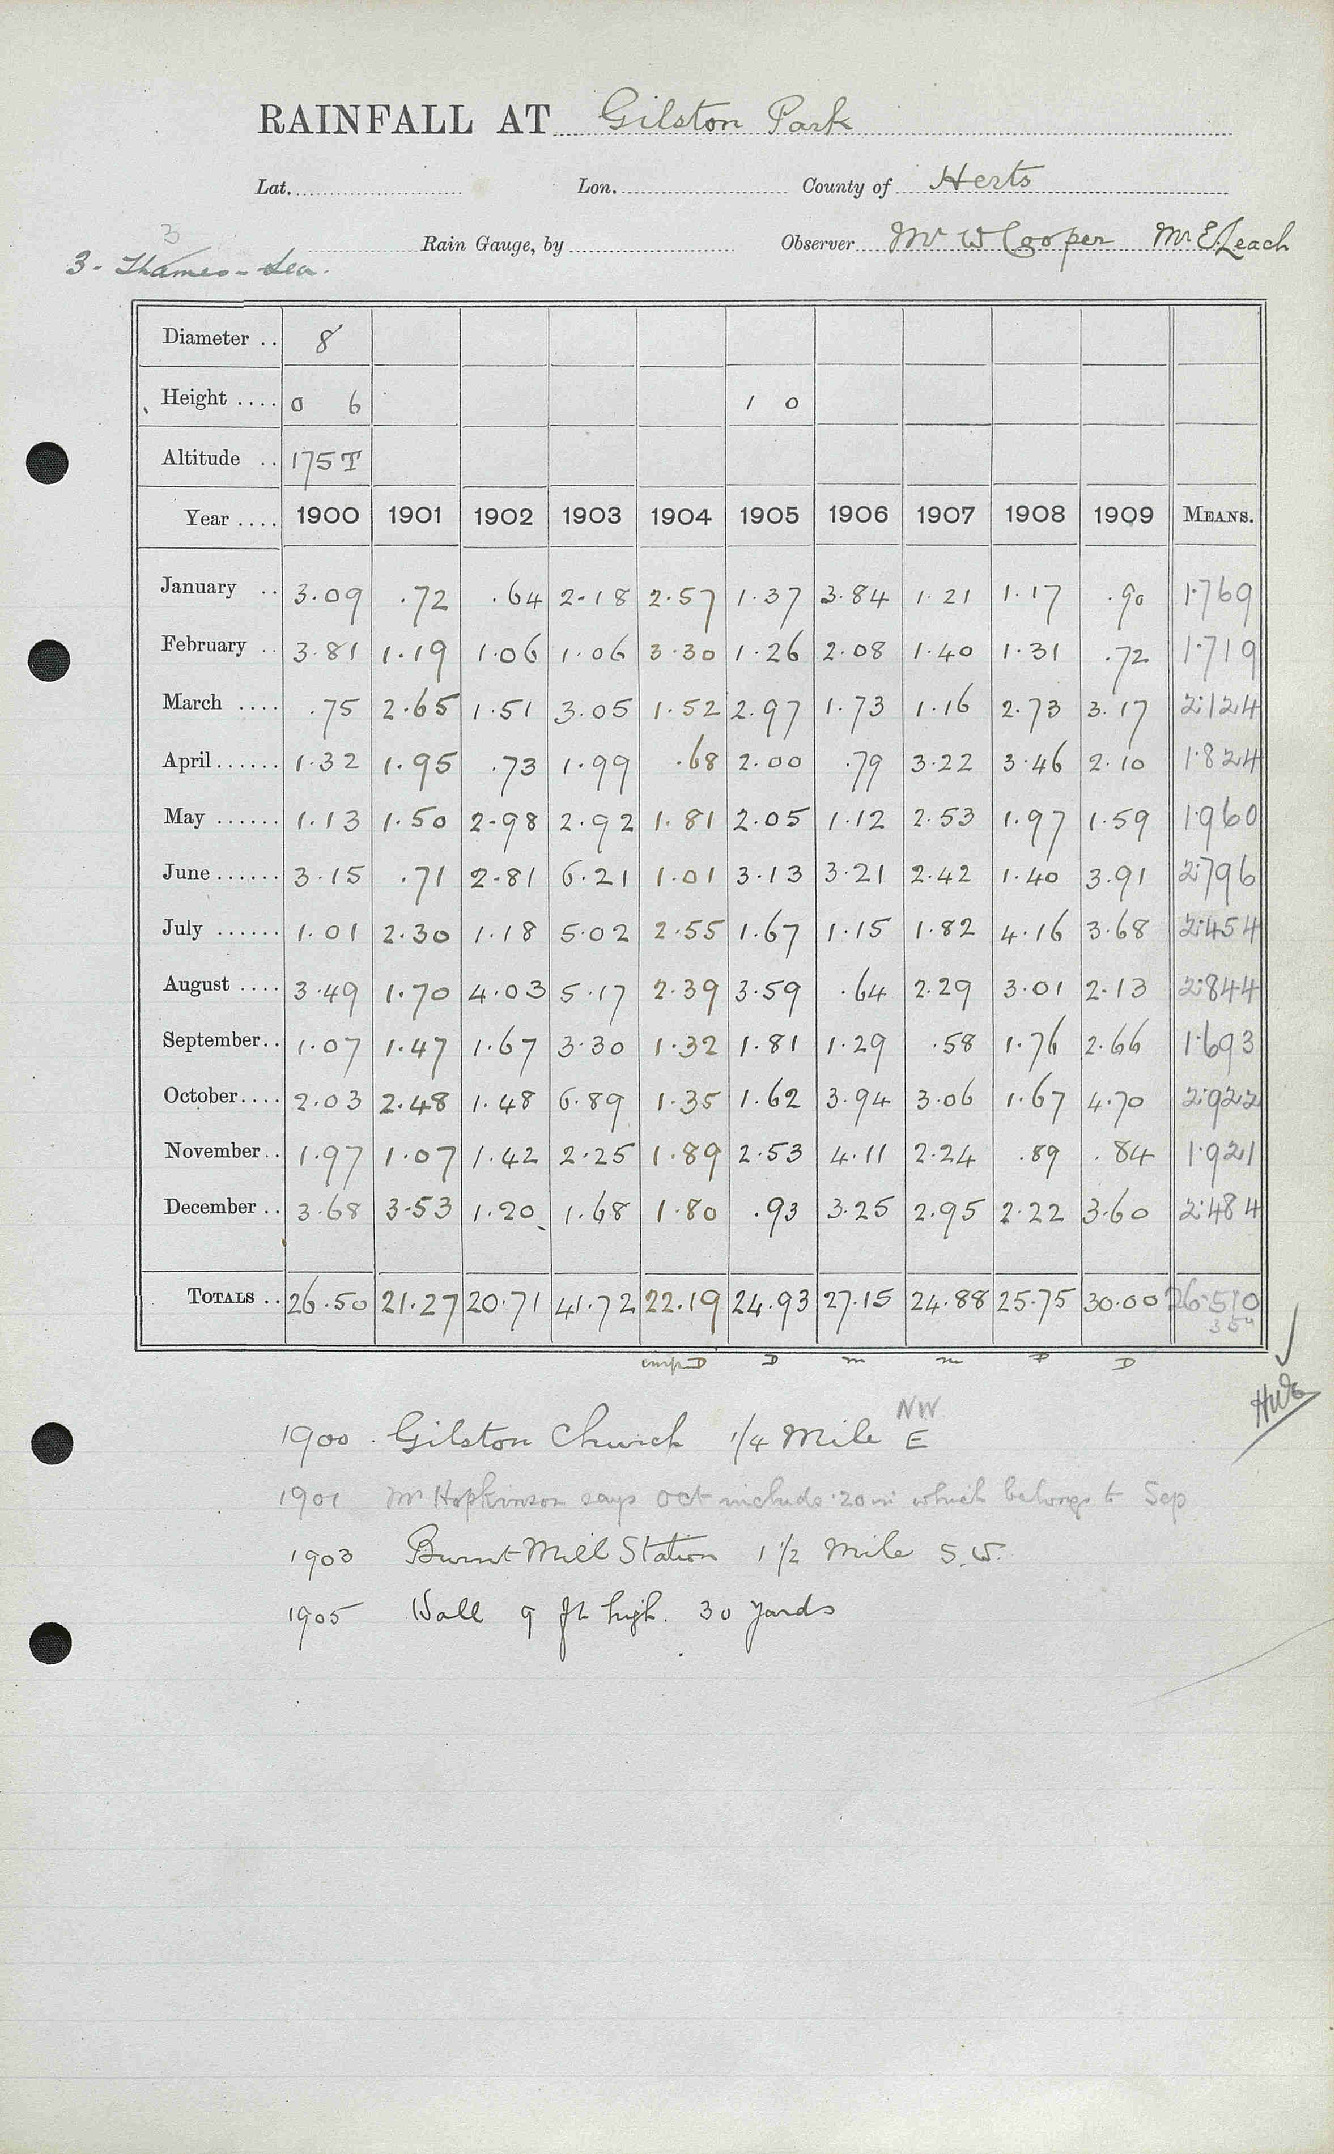 RAINFALL AT Gilston Park
Lat. Lon. County of Herts
3
Rain Gauge, by Observer Mr W Cooper Mr E. Leach
3 - Thames - Lea.
Diameter .. 8
Height .... 0 6 1 0
Altitude .. 175 T
Year .... 1900 1901 1902 1903 1904 1905 1906 1907 1908 1909 MEANS.
January .. 3.09 .72 .64 2.18 2.57 1.37 3.84 1.21 1.17 .90 1.769
February .. 3.81 1.19 1.06 1.06 3.30 1.26 2.08 1.40 1.31 .72 1.719
March .... .75 2.65 1.51 3.05 1.52 2.97 1.73 1.16 2.73 3.17 2.124
April ...... 1.32 1.95 .73 1.99 .68 2.00 .79 3.22 3.46 2.10 1.824
May ...... 1.13 1.50 2.98 2.92 1.81 2.05 1.12 2.53 1.97 1.59 1.960
June ...... 3.15 .71 2.81 6.21 1.01 3.13 3.21 2.42 1.40 3.91 2.796
July ...... 1.01 2.30 1.18 5.02 2.55 1.67 1.15 1.82 4.16 3.68 2.454
August .... 3.49 1.70 4.03 5.17 2.39 3.59 .64 2.29 3.01 2.13 2.844
September .. 1.07 1.47 1.67 3.30 1.32 1.81 1.29 .58 1.76 2.66 1.693
October .... 2.03 2.48 1.48 6.89 1.35 1.62 3.94 3.06 1.67 4.70 2.922
November .. 1.97 1.07 1.42 2.25 1.89 2.53 4.11 2.24 .89 .84 1.921
December .. 3.68 3.53 1.20 1.68 1.80 .93 3.25 2.95 2.22 3.60 2.484
TOTALS .. 26.50 21.27 20.71 41.72 22.19 24.93 27.15 24.88 25.75 30.00 26.510
D D m m D
NW
1900 . Gilston Church 1/4 Mile E
1901 Mr Hopkinson says Oct include .20 in which belongs to Sep
1903 Burnt Mill Station 1 1/2 Mile S.W.
1905 Wall 9 ft high. 30 yards